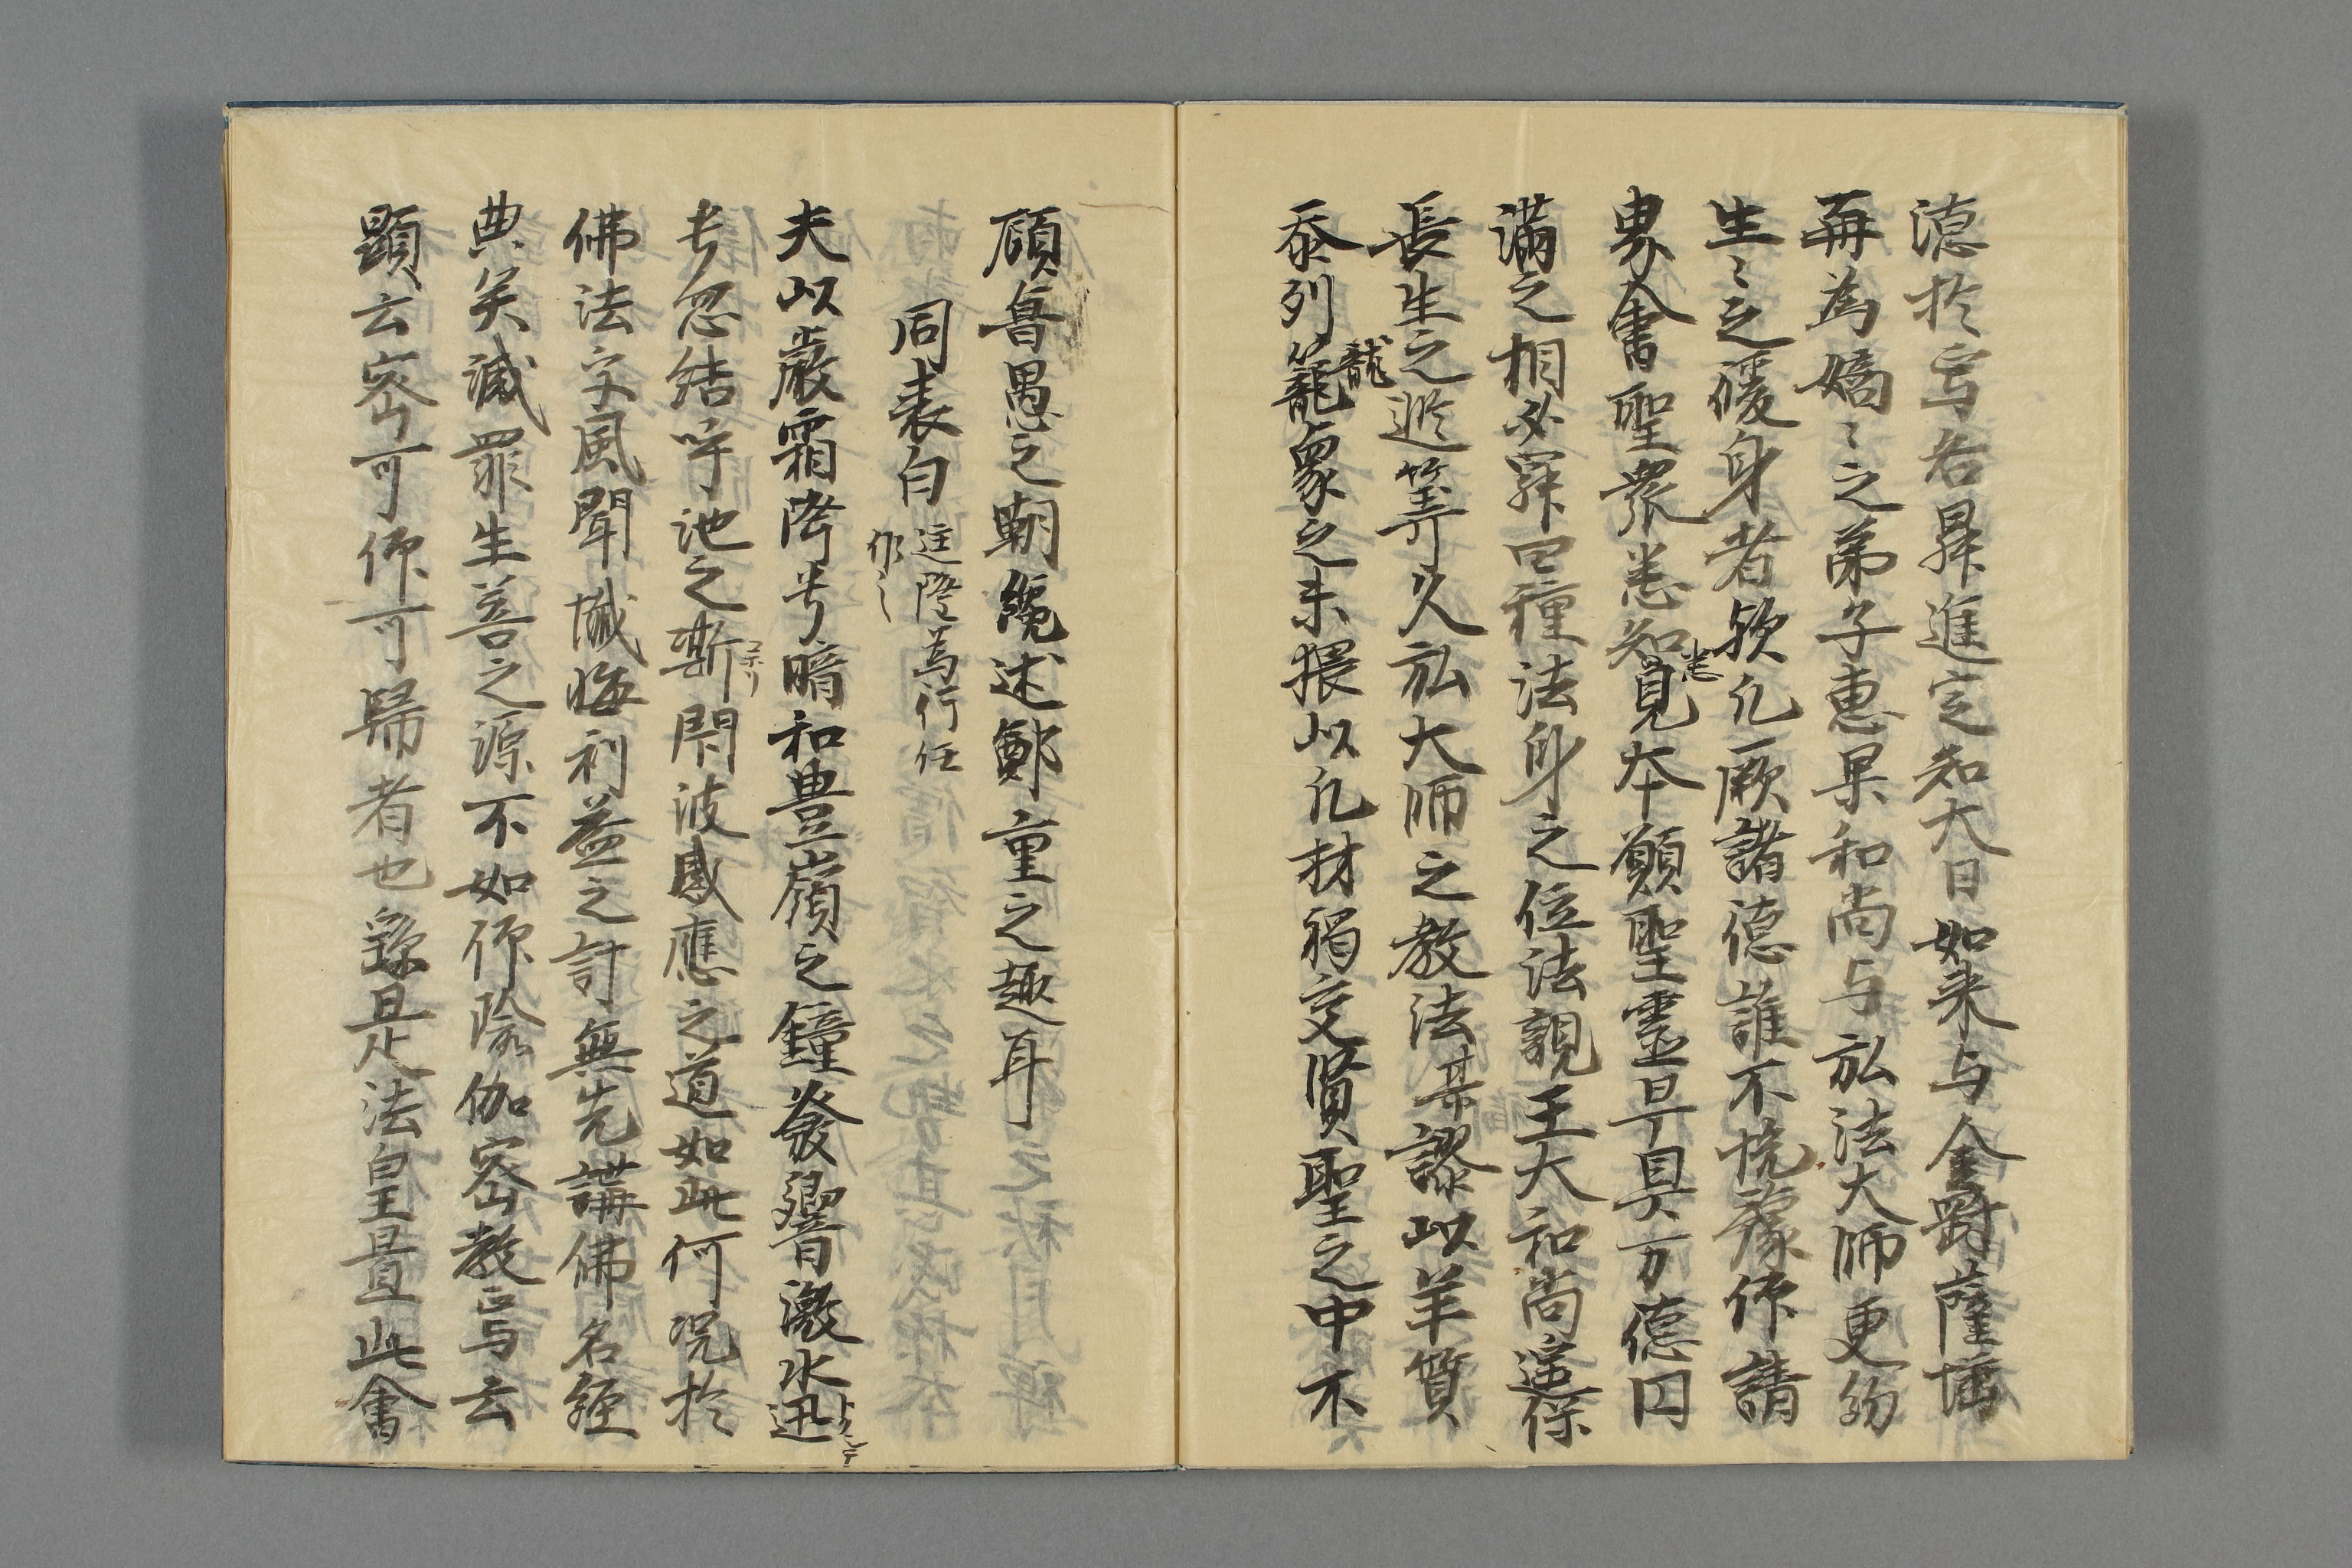 徳於写若昇進定知大日如来与金剛薩埵
再為嫡〻之弟子恵果和尚与弘法大師更約
生〻之後身者歟凡厥諸徳誰不悦豫仰請
界会聖衆悉知悉見本願聖霊早具万徳円
満之相必昇四種法身之位法親王大和尚遥保
長生之遐筭久弘大師之教法某謬以羊質
忝列龍象之末猥以凡材猶交賢聖之中不
顧魯愚之嘲纔述鄭重之趣耳
同表白
作之
夫以厳霜降兮暗和豊嶺之鐘発響激水迅
兮忽結昤池之斯開波感應之道如此何况於
佛法宗風聞懴悔利益之討無先講佛名経
典矣滅罪生善之源不如仰瑜伽密教焉云
顕云密可仰可歸者也繇是法皇置此會